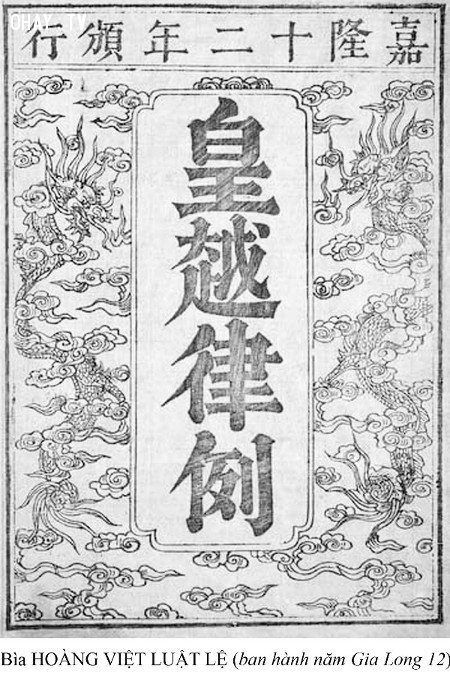 OHAY TV
嘉隆十二年頒行
皇越律例
Bìa HOÀNG VIỆT LUẬT LỆ (ban hành năm Gia Long 12)